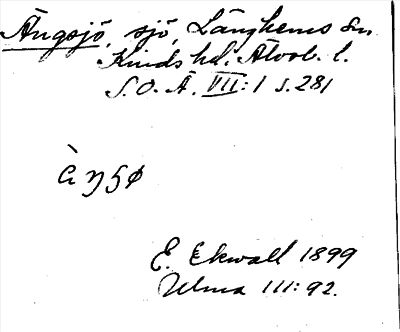 Ängsjö, sjö, Länghems sn
Kinds hd. Älvsb. l.
S.O.Ä. VII:1 s.281
E. Ekwall 1899
Ulma III:92.